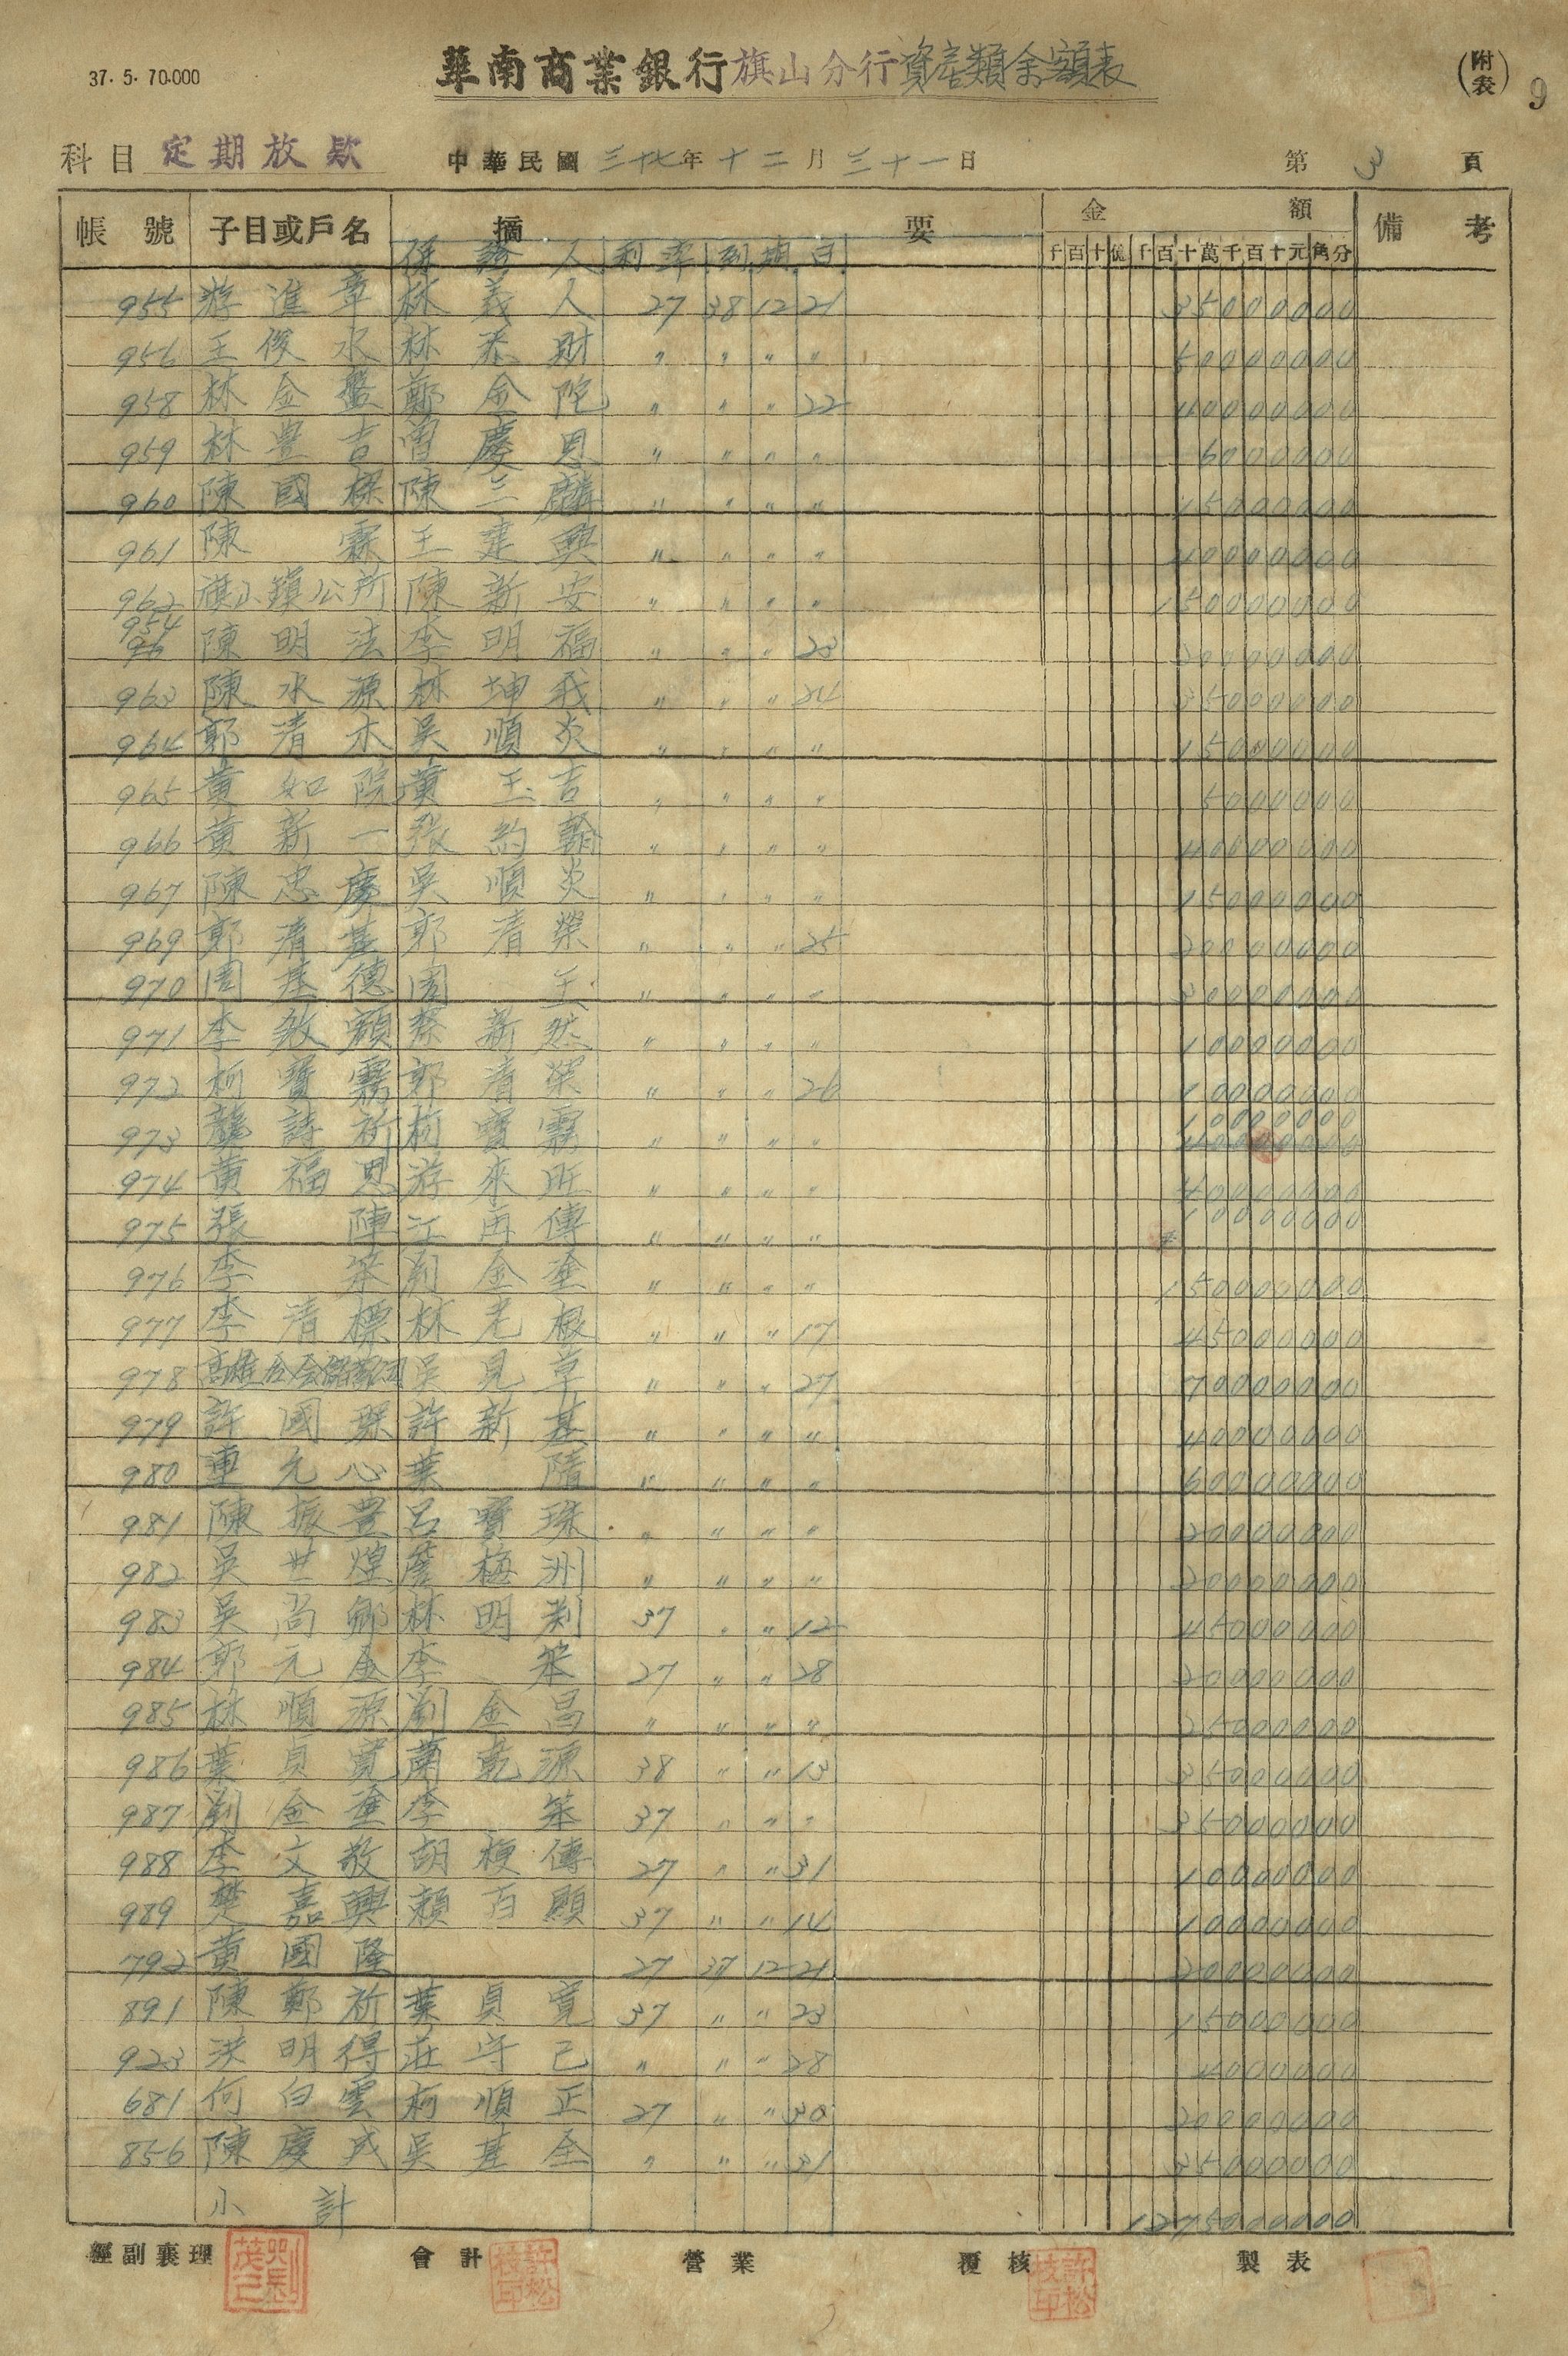 37. 5. 70.000
華南商業銀行旗山分行資產類余額表
(附表) 9
科目 定期放款 中華民國三十七年十二月三十一日 第3頁
帳號 子目或戶名 摘要 金額 備考
保證人 利率 到期日 千百十億千百十萬千百十元角分
955 游進章 林義人 27 38 12 21 35000000
956 王俊水 林添財 〃 〃 〃 〃 50000000
958 林金盤 鄭金陀 〃 〃 〃 22 40000000
959 林豊吉 曾慶恩 〃 〃 〃 〃 6000000
960 陳國樑 陳三麟 〃 〃 〃 〃 15000000
961 陳霖 王建興 〃 〃 〃 〃 40000000
962 旗山鎮公所 陳新安 〃 〃 〃 〃 150000000
954 陳明法 李明福 〃 〃 〃 23 20000000
963 陳水源 林坤我 〃 〃 〃 24 35000000
964 郭清木 吳順炎 〃 〃 〃 〃 15000000
965 黃如院 黃玉吉 〃 〃 〃 〃 5000000
966 黃新一 張約翰 〃 〃 〃 〃 40000000
967 陳忠慶 吳順炎 〃 〃 〃 〃 15000000
969 郭清基 郭清榮 〃 〃 〃 25 20000000
970 周基德 周王 〃 〃 〃 〃 30000000
971 李敏額 蔡新然 〃 〃 〃 〃 10000000
972 柯寶霧 郭清榮 〃 〃 〃 26 10000000
10000000
973 龔詩祈 柯寶霧 〃 〃 〃 〃 40000000
974 黃福恩 游來旺 〃 〃 〃 〃 40000000
975 張陣 江再傳 〃 〃 〃 〃 10000000
976 李笨 劉金奎 〃 〃 〃 〃 150000000
977 李清標 林老根 〃 〃 〃 17 45000000
978 吳見草 〃 〃 〃 27 70000000
979 許國琛 許新基 〃 〃 〃 〃 40000000
980 連元心 葉隋 〃 〃 〃 〃 60000000
981 陳振豊 呂寶珠 〃 〃 〃 〃 20000000
982 吳世煌 詹梅洲 〃 〃 〃 〃 20000000
983 吳尚鄉 林明利 37 〃 〃 12 45000000
984 郭元金 李笨 27 〃 〃 28 20000000
985 林順源 劉金昌 〃 〃 〃 〃 25000000
986 葉貞寬 蘭乾源 38 〃 〃 13 35000000
987 劉金奎 李笨 37 〃 〃 〃 35000000
988 李文敬 胡梗傳 27 〃 〃 31 10000000
989 樊嘉興 賴百顯 37 〃 〃 14 10000000
792 黃國隆 27 37 12 21 20000000
891 陳鄭祈 葉貞寬 37 〃 〃 23 15000000
923 洪明得 莊守己 〃 〃 〃 28 4000000
681 何白雲 柯順正 27 〃 〃 30 20000000
856 陳慶成 吳基全 〃 〃 〃 31 35000000
小計 1275000000
經副襄理 會計 營業 覆核 製表
許松枝印 許松枝印